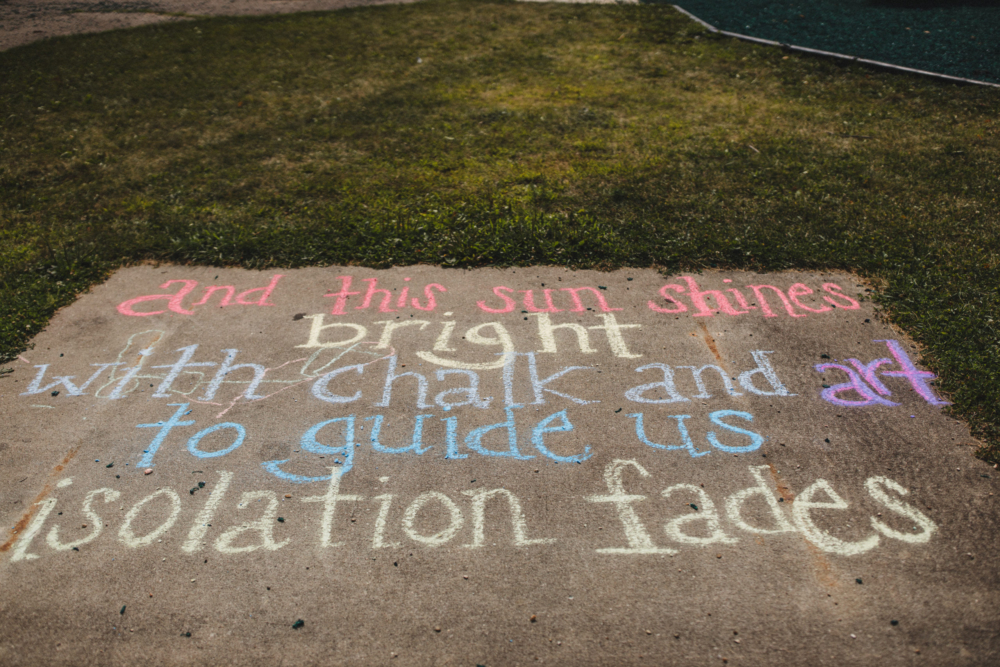 and this sun shines
bright
with chalk and art
to guide us
isolation fades